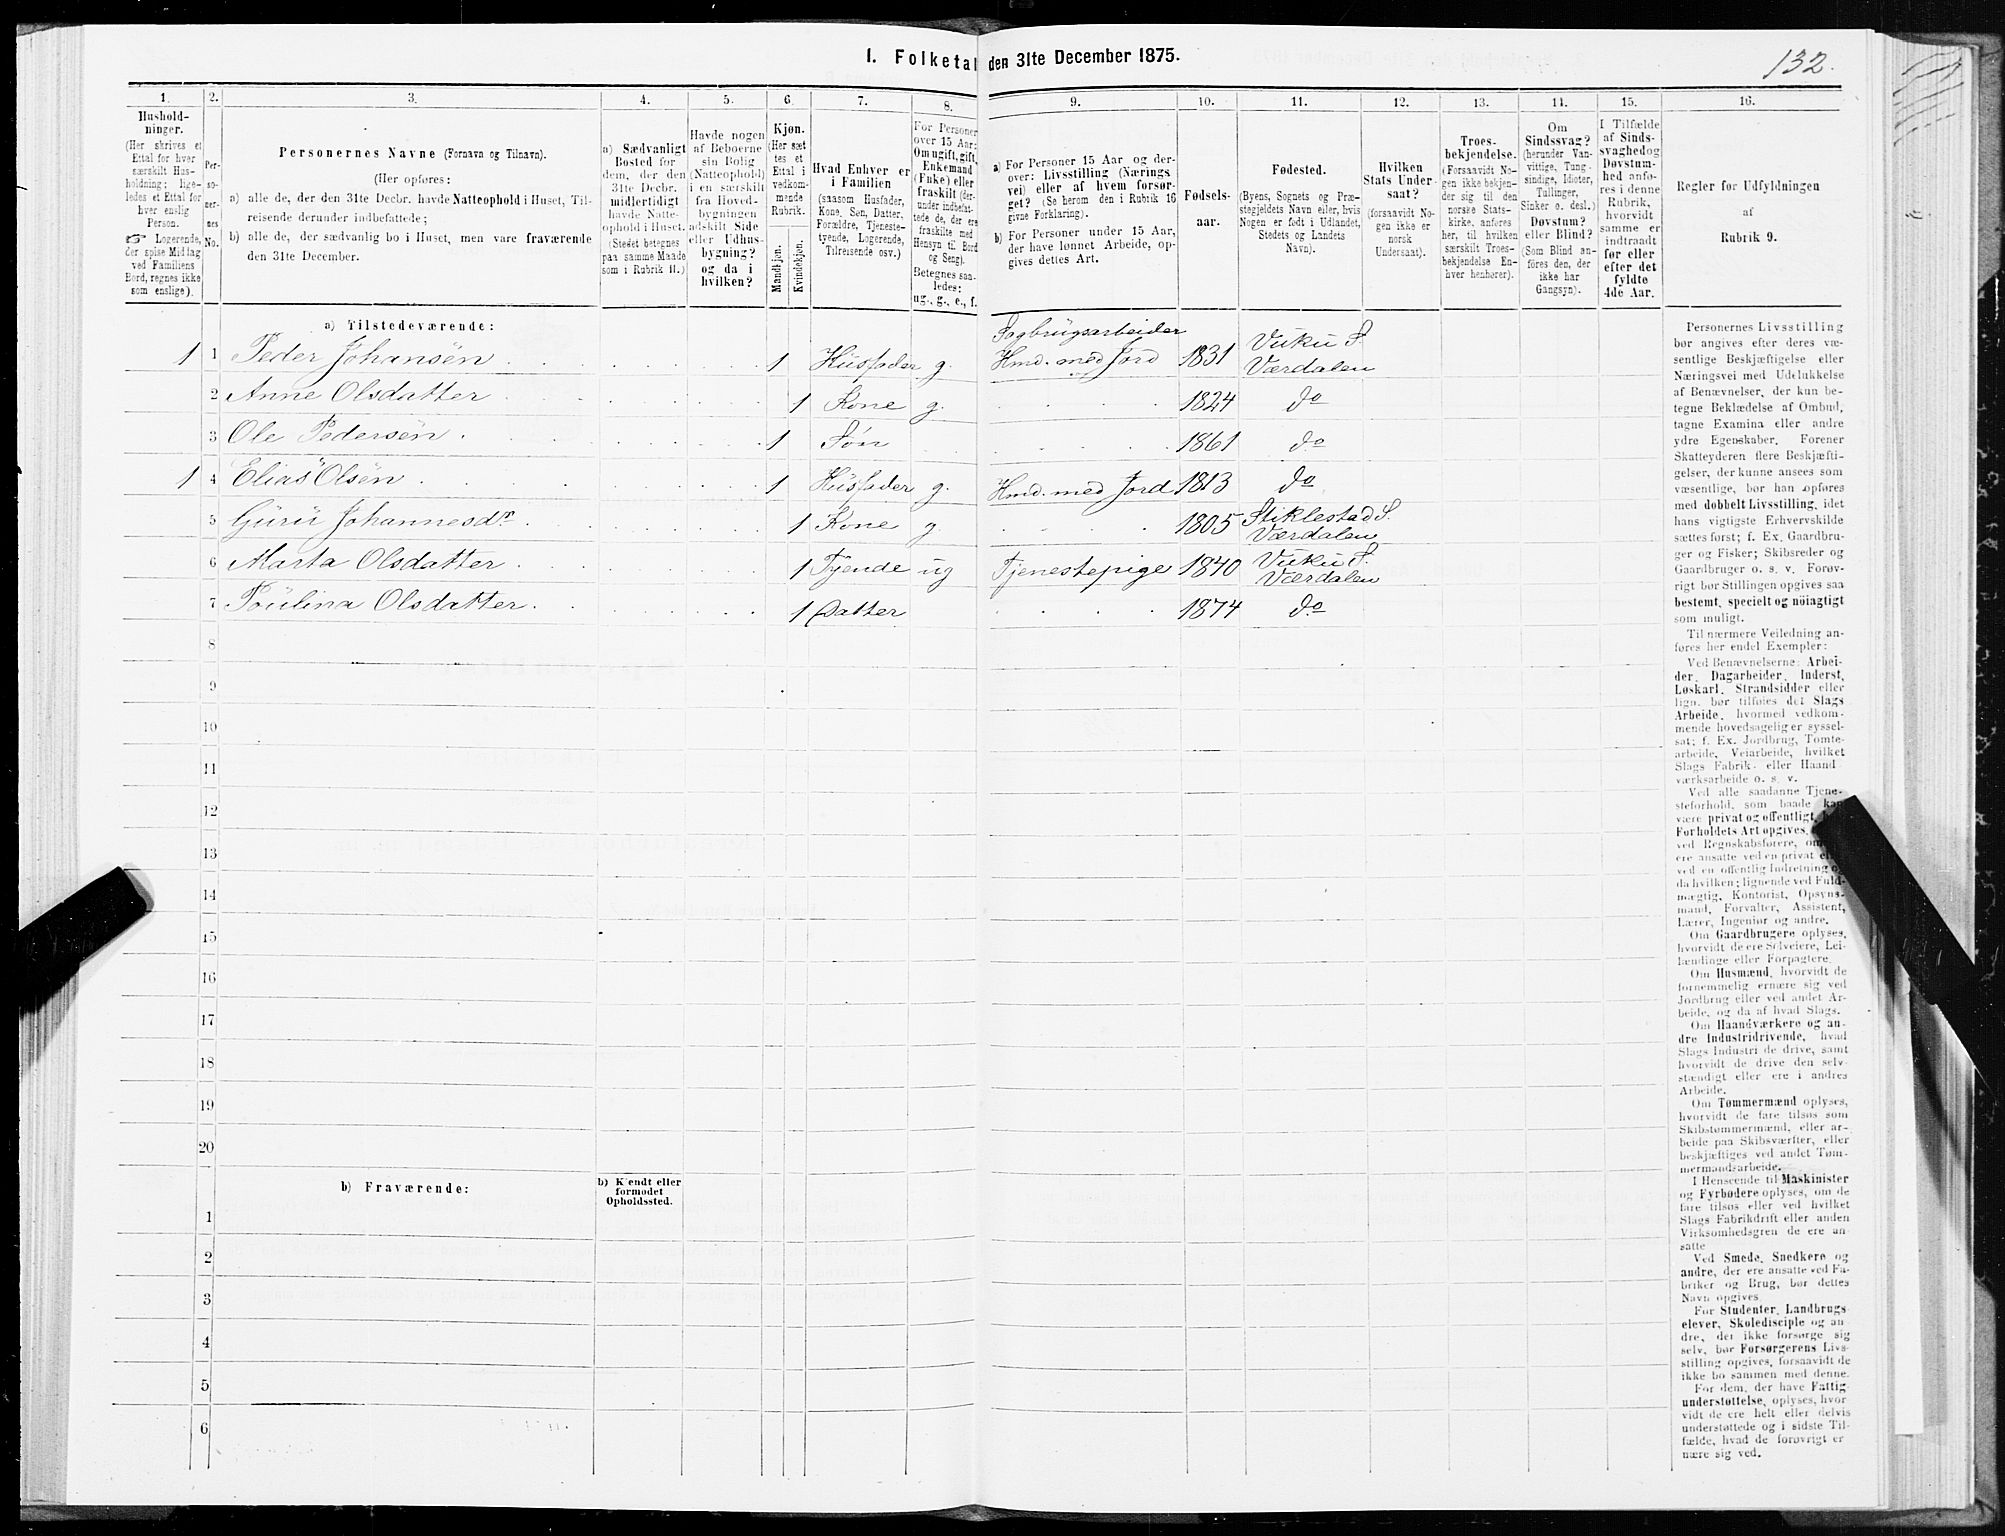 I. Folketal den 31te December 1875.
132.
1.
Hushold-
ninger.
(Her skrives et
Ettal for hver
særskilt Hus-
holdning; lige-
ledes et Ettal for
hver enslig
Person.
☞ Logerende,
der spise Middag
ved Familiens
Bord, regnes ikke
som enslige).
2.
Per-
so-
ner-
nes
No.
3.
Personernes Navne (Fornavn og Tilnavn).
(Her opføres:
a) alle de, der den 31te Decbr. havde Natteophold i Huset, Til-
reisende derunder indbefattede;
b) alle de, der sædvanlig bo i Huset, men vare fraværende
den 31te December.
4.
a) Sædvanligt
Bosted for
dem, der den
31te Decbr.
midlertidigt
havde Natte-
ophold i Huset.
(Stedet betegnes
paa samme Maade
som i Rubrik 11.)
5.
Havde nogen
af Beboerne
sin Bolig
(Natteophold)
i en særskilt
fra Hoved-
bygningen
adskilt Side
eller Udhus-
bygning?
og da i
hvilken?
6.
Kjøn.
(Her sæt
tes et
Ettal i
vedkom-
mende
Rubrik.
Mandkjøn.
Kvindekjøn.
7.
Hvad Enhver er
i Familien
(saasom Husfader,
Kone, Søn, Datter,
Forældre, Tjeneste-
tyende, Logerende,
Tilreisende osv.)
8.
For Personer
over 15 Aar:
Om ugift, gift,
Enkemand
(Enke) eller
fraskilt (der-
under indbefat-
tede de, der ere
fraskilte med
Hensyn til Bord
og Seng).
Betegnes saa-
ledes:
ug., g., e., f.
9.
a) For Personer 15 Aar og der-
over: Livsstilling (Nærings
vei) eller af hvem forsør-
get? (Se herom den i Rubrik 16
givne Forklaring).
b) For Personer under 15 Aar,
der have lønnet Arbeide, op-
gives dettes Art.
10.
Fødsels-
aar.
11.
Fødested.
(Byens, Sognets og Præ-
stegjeldets Navn eller, hvis
Nogen er født i Udlandet,
Stedets og Landets
Navn).
12.
Hvilken
Stats Under-
saat?
(forsaavidt No-
gen ikke er
norsk
Undersaat).
13.
Troes-
bekjendelse.
(Forsaavidt No-
gen ikke bekjen-
der sig til den
norske Stats-
kirke, anføres
her, til hvilken
særskilt Troes-
bekjendelse En-
hver henhører).
14.
Om
Sindssvag?
(herunder Van-
vittige, Tung-
sindige, Idioter,
Tullinger,
Sinker o. desl.)
Døvstum?
eller Blind?
(Som Blind an-
føres den, der
ikke har
Gangsyn).
15.
I Tilfælde
af Sinds-
svaghed og
Døvstum-
hed anfø-
res i denne
Rubrik,
hvorvidt
samme er
indtraadt
før eller
efter det
fyldte
4de Aar.
16.
Regler for Udfyldningen
af
Rubrik 9.
a) Tilstedeværende:
1 1 Peder Johansen 1 Husfader g. Sagbrugsarbeider Hmd. med Jord 1831 Vuku S. Værdalen
2 Anne Olsdatter 1 Kone g. 1824 do
3 Ole Pedersen 1 Søn 1861 do
1 4 Elias Olsen 1 Husfader g. Hmd. med Jord 1813 do
5 Guru Johannesdr 1 Kone g. 1805 Stiklestad S. Værdalen
6 Marta Olsdatter 1 Tyende ug Tjenestepige 1840 Vuku S. Værdalen
7 Poulina Olsdatter 1 Datter 1874 do
8
9
10
11
12
13
14
15
16
17
18
19
20
b) Fraværende:
b) Kjendt eller
formodet
Opholdssted.
1
2
3
4
5
6
Personernes Livsstilling
bør angives efter deres væ-
sentlige Beskjæftigelse eller
Næringsvei med Udelukkelse
af Benævnelser, der kun be-
tegne Beklædelse af Ombud,
tagne Examina eller andre
ydre Egenskaber. Forener
Skatteyderen flere Beskjæfti-
gelser, der kunne ansees som
væsentlige, bør han opføres
med dobbelt Livsstilling, idet
hans vigtigste Erhvervskilde
sættes først; f. Ex. Gaardbru-
ger og Fisker; Skibsreder og
Gaardbruger o. s. v. Forøv-
rigt bør Stillingen opgives saa
bestemt, specielt og nöiagtigt
som muligt.
Til nærmere Veiledning an-
føres her endel Exempler:
Ved Benævnelserne: Arbei-
der, Dagarbeider, Inderst,
Løskarl, Strandsidder eller
lign. bør tilføies det Slags
Arbeide, hvormed vedkom-
mende hovedsagelig er syssel-
sat; f. Ex. Jordbrug, Tomte-
arbeide, Veiarbeide, hvilket
Slags Fabrik- eller Haand
værksarbeide o. s. v.
Ved alle saadanne Tjene-
steforhold, som baade kan
være privat og offentligt,
Forholdets Art opgives,
ved Regnskabsførere, om
ere ansatte ved en privat
ved en offentlig Indretning
da hvilken; lignende ved Fuld-
mægtig, Kontorist, Opsyns-
mand, Forvalter, Assistent,
Lærer, Ingeniør og andre.
Om Gaardbrugere oplyses,
hvorvidt de ere Selveiere, Lei-
lændinge eller Forpagtere.
Om Husmænd, hvorvidt de
fornemmelig ernære sig ved
Jordbrug eller ved andet Ar-
beide, og da af hvad Slags.
Om Haandværkere og an-
dre Industridrivende, hvad
Slags Industri de drive, samt
hvorvidt de drive den selv-
stændigt eller ere i andres
Arbeide.
Om Tømmermænd oplyses,
hvorvidt de fare tilsøs som
Skibstømmermænd, eller ar-
beide paa Skibsværfter, eller
beskjæftiges ved andet Tøm-
mermandsarbeide.
I Henseende til Maskinister
og Fyrbødere oplyses, om de
fare tilsøs eller ved hvilket
Slags Fabrikdrift eller anden
Virksomhedsgren de ere an-
satte
Ved Smede, Snedkere og
andre, der ere ansatte ved Fa-
briker og Brug, bør dettes
Navn opgives.
For Studenter, Landbrugs-
elever, Skoledisciple og an-
dre, der ikke forsørge sig
selv, bør Forsørgerens Livs-
stilling opgives, forsaavidt de
ikke bo sammen med denne.
For dem, der have Fattig-
understøttelse, oplyses, hvor-
vidt de ere helt eller delvis
understøttede og i sidste Til-
fælde, hvad de forøvrigt er
nære sig ved.